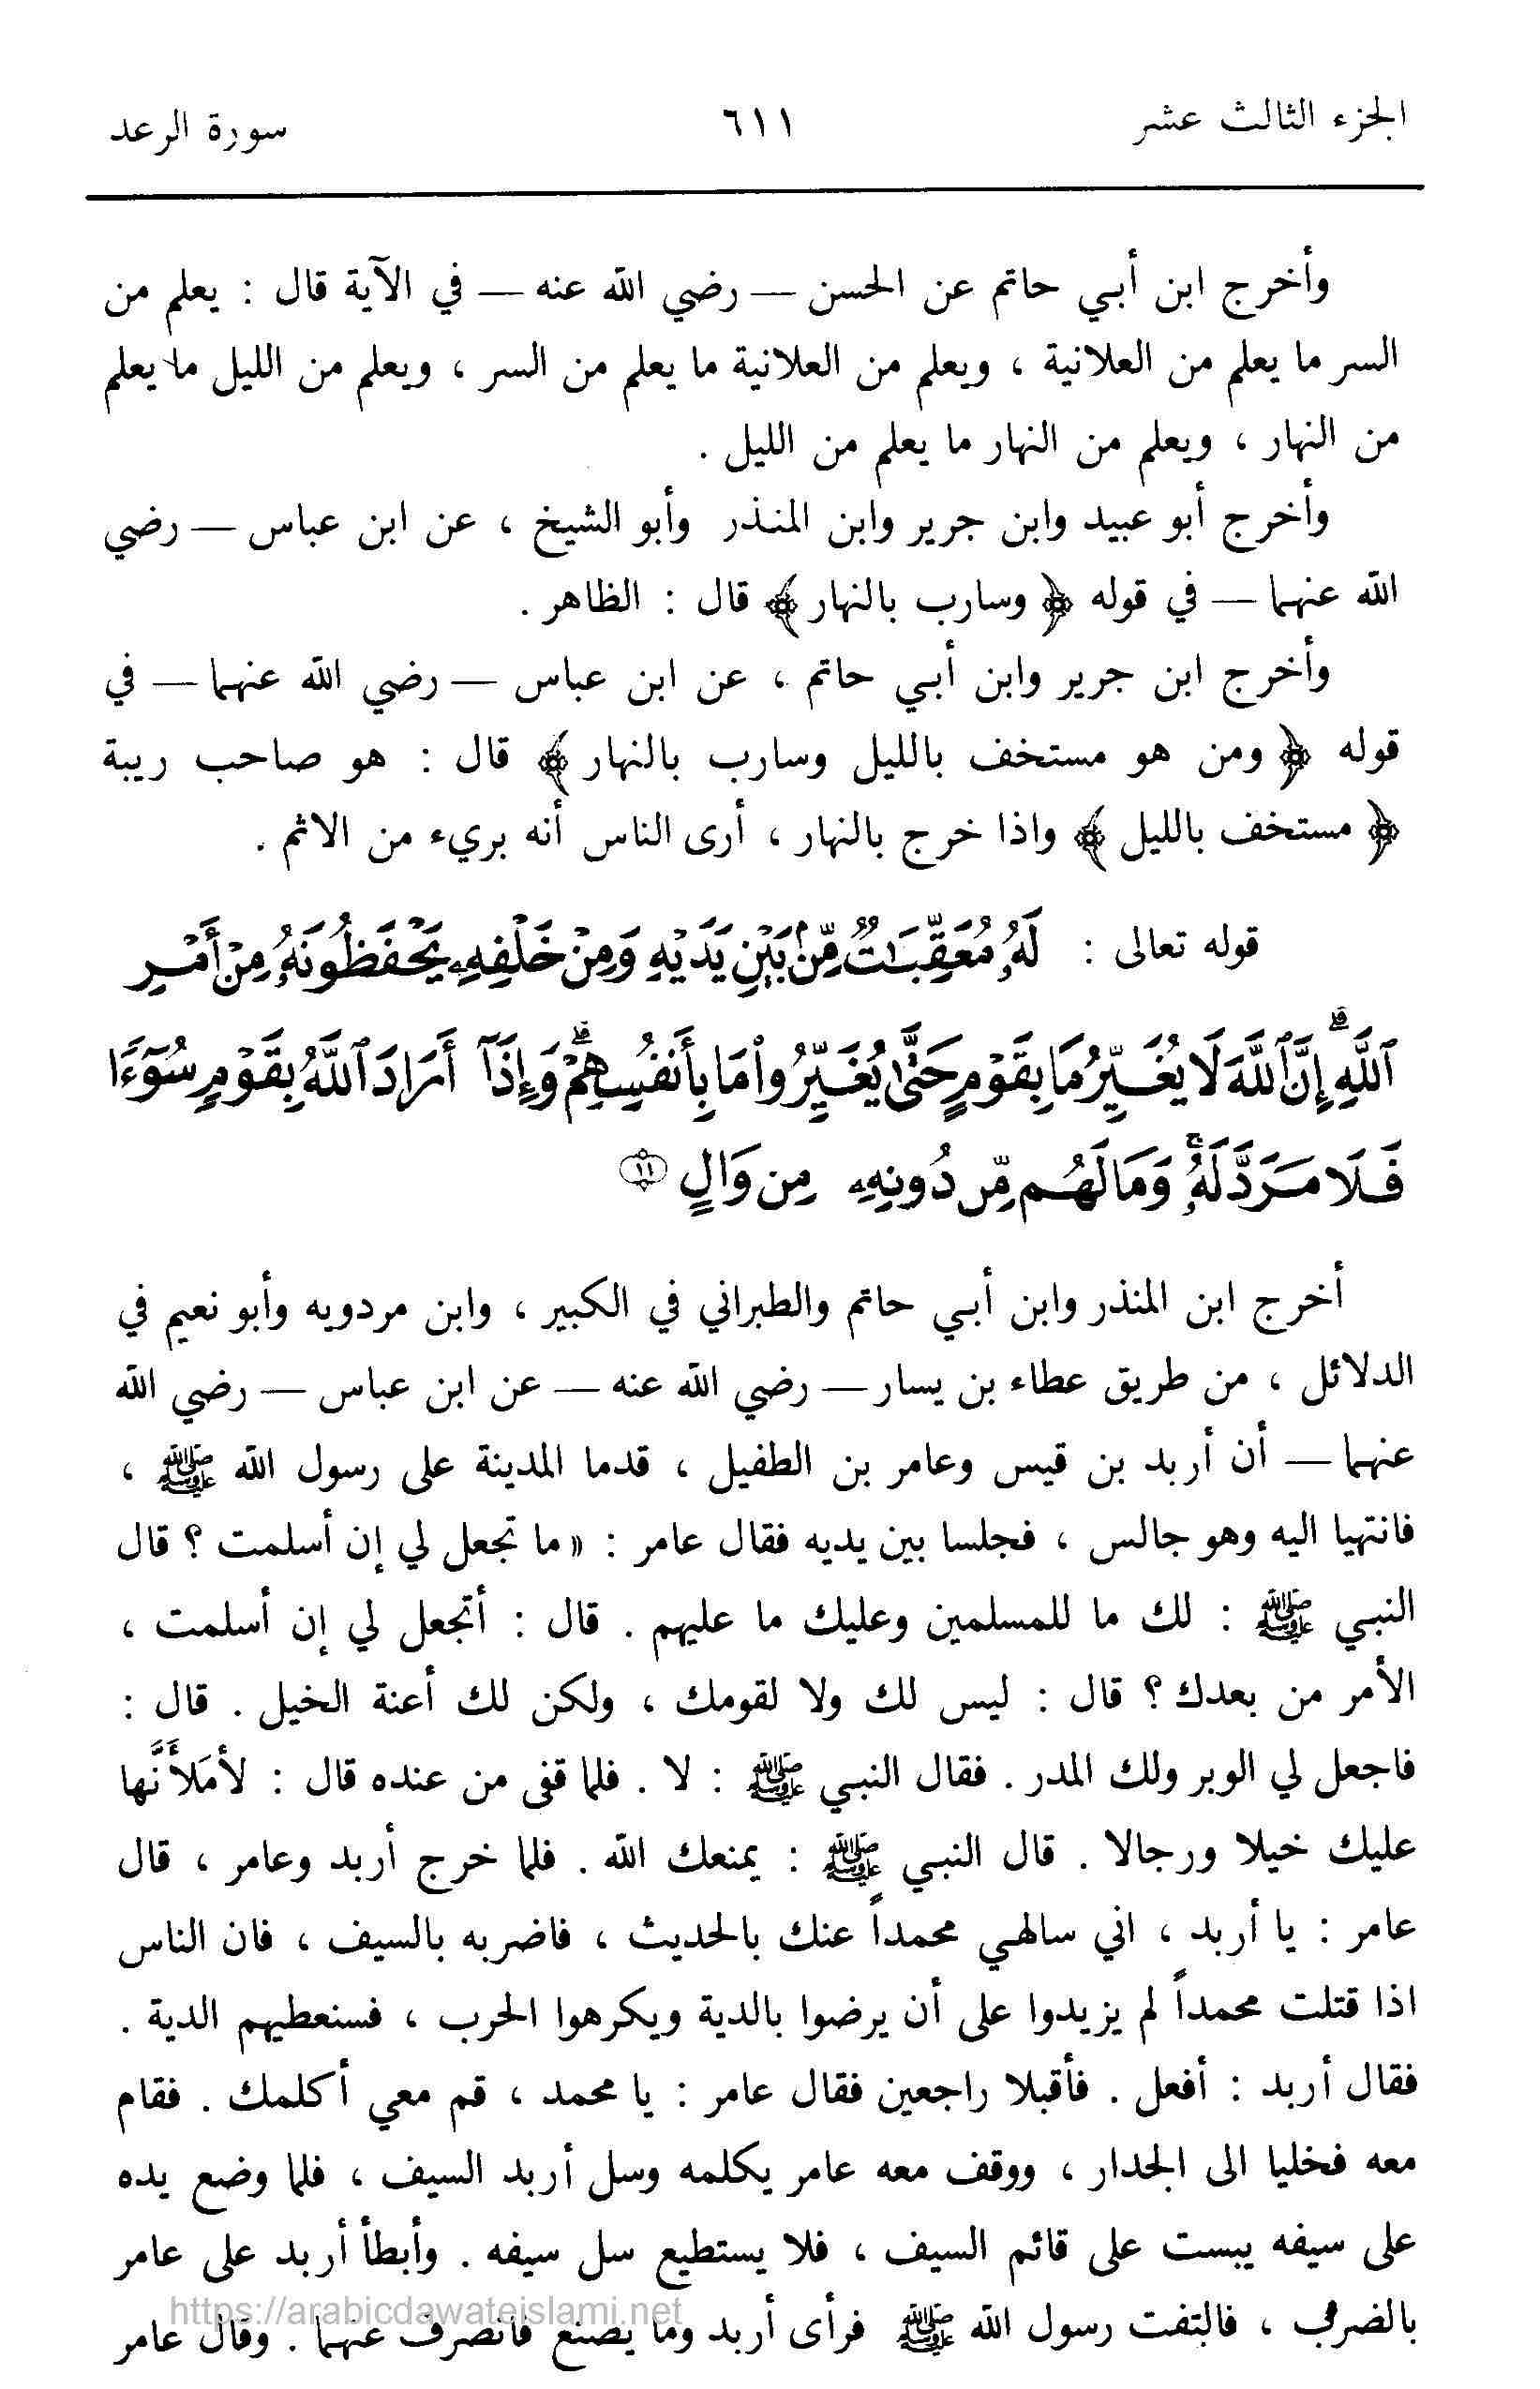 الجزء الثالث عشر ٦١١ سورة الرعد
وأخرج ابن أبي حاتم عن الحسن — رضي الله عنه — في الآية قال : يعلم من
السر ما يعلم من العلانية ، ويعلم من العلانية ما يعلم من السر ، ويعلم من الليل ما يعلم
من النهار ، ويعلم من النهار ما يعلم من الليل .
وأخرج أبو عبيد وابن جرير وابن المنذر وأبو الشيخ ، عن ابن عباس — رضي
الله عنهما — في قوله ﴿ وسارب بالنهار ﴾ قال : الظاهر .
وأخرج ابن جرير وابن أبي حاتم ، عن ابن عباس — رضي الله عنهما — في
قوله ﴿ ومن هو مستخف بالليل وسارب بالنهار ﴾ قال : هو صاحب ريبة
﴿ مستخف بالليل ﴾ واذا خرج بالنهار ، أرى الناس أنه بريء من الاثم .
قوله تعالى : لَهُۥ مُعَقِّبَـٰتٌ مِّنۢ بَيْنِ يَدَيْهِ وَمِنْ خَلْفِهِۦ يَحْفَظُونَهُۥ مِنْ أَمْرِ
ٱللَّهِ ۗ إِنَّ ٱللَّهَ لَا يُغَيِّرُ مَا بِقَوْمٍ حَتَّىٰ يُغَيِّرُوا۟ مَا بِأَنفُسِهِمْ ۗ وَإِذَآ أَرَادَ ٱللَّهُ بِقَوْمٍ سُوٓءًا
فَلَا مَرَدَّ لَهُۥ ۚ وَمَا لَهُم مِّن دُونِهِۦ مِن وَالٍ ١١
أخرج ابن المنذر وابن أبي حاتم والطبراني في الكبير ، وابن مردويه وأبو نعيم في
الدلائل ، من طريق عطاء بن يسار — رضي الله عنه — عن ابن عباس — رضي الله
عنهما — أن أربد بن قيس وعامر بن الطفيل ، قدما المدينة على رسول الله ﷺ ،
فانتهيا اليه وهو جالس ، فجلسا بين يديه فقال عامر : « ما تجعل لي إن أسلمت ؟ قال
النبي ﷺ : لك ما للمسلمين وعليك ما عليهم . قال : أتجعل لي إن أسلمت ،
الأمر من بعدك ؟ قال : ليس لك ولا لقومك ، ولكن لك أعنة الخيل . قال :
فاجعل لي الوبر ولك المدر . فقال النبي ﷺ : لا . فلما قفى من عنده قال : لأمَلأَنَّها
عليك خيلا ورجالا . قال النبي ﷺ : يمنعك الله . فلما خرج أربد وعامر ، قال
عامر : يا أربد ، اني سالهي محمداً عنك بالحديث ، فاضربه بالسيف ، فان الناس
اذا قتلت محمداً لم يزيدوا على أن يرضوا بالدية ويكرهوا الحرب ، فسنعطيهم الدية .
فقال أربد : أفعل . فأقبلا راجعين فقال عامر : يا محمد ، قم معي أكلمك . فقام
معه فخليا الى الجدار ، ووقف معه عامر يكلمه وسل أربد السيف ، فلما وضع يده
على سيفه يبست على قائم السيف ، فلا يستطيع سل سيفه . وأبطأ أربد على عامر
بالضرب ، فالتفت رسول الله ﷺ فرأى أربد وما يصنع فانصرف عنهما . وقال عامر
https://arabicdawateislami.net